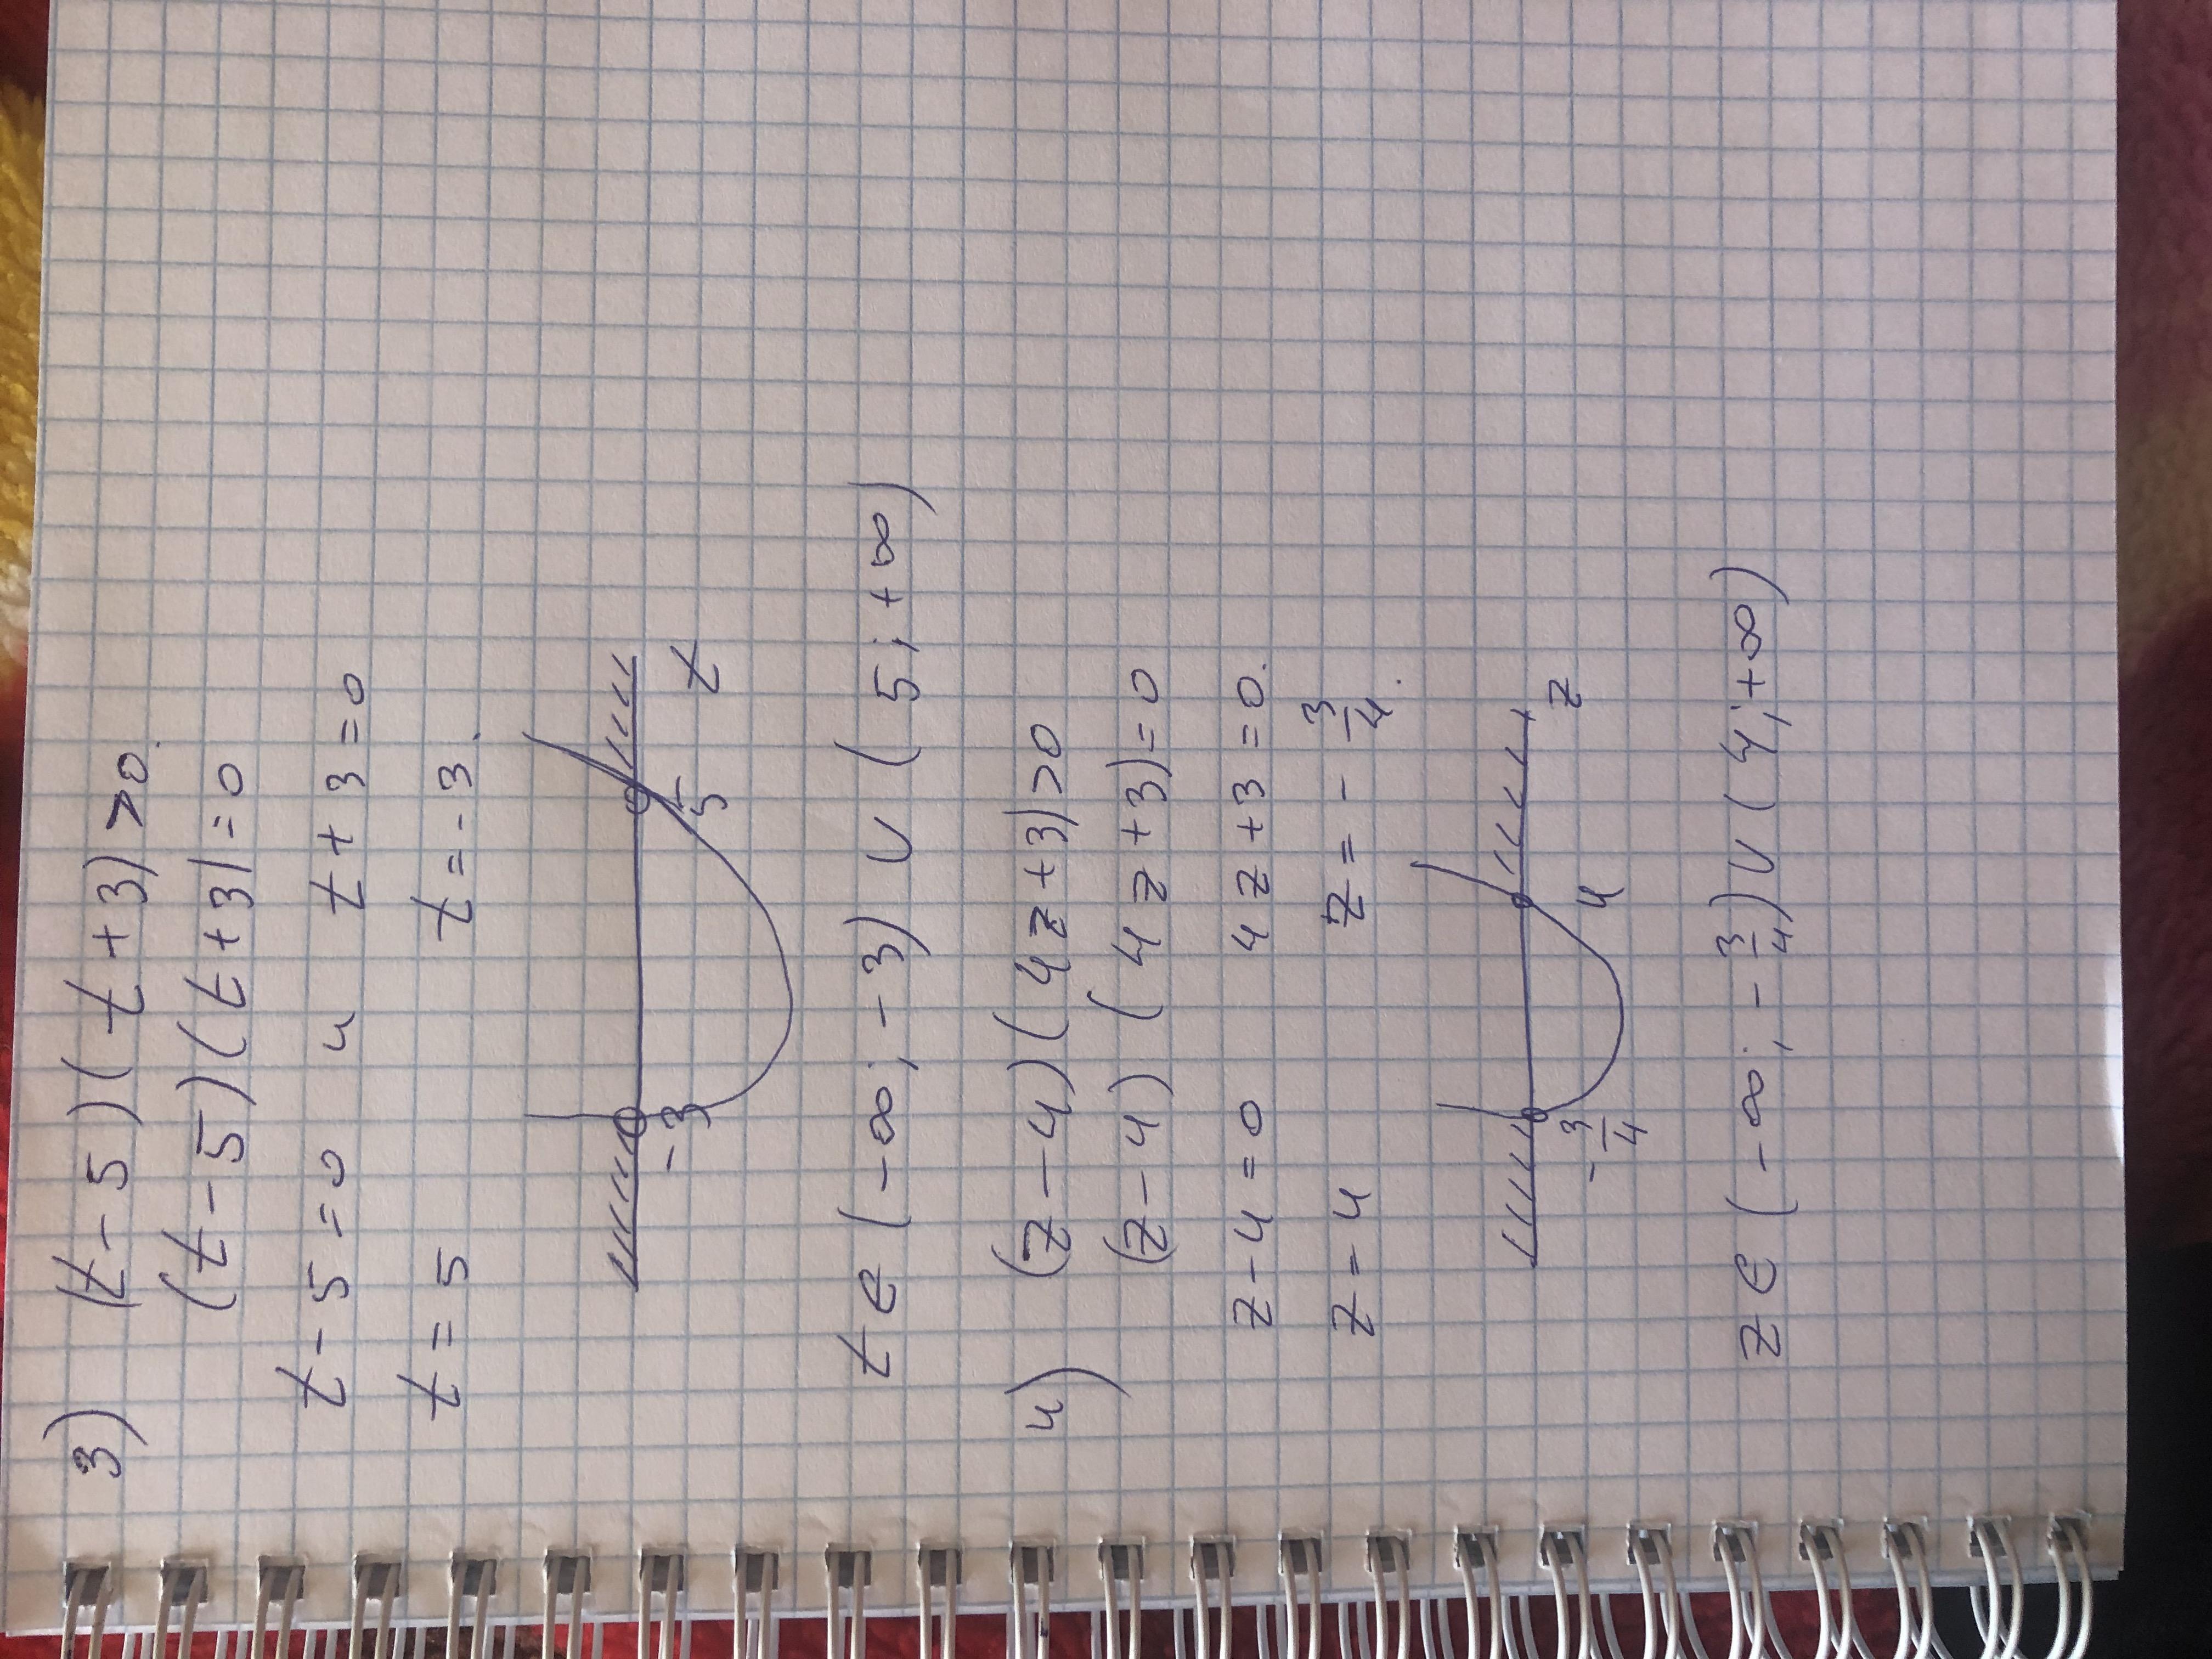 3) (t-5)(t+3)>0.
(t-5)(t+3)=0
t-5=0 и t+3=0
t=5 t=-3.
-3 5 t
t∈(-∞;-3)∪(5;+∞)
4) (z-4)(4z+3)>0
(z-4)(4z+3)=0
z-4=0 4z+3=0.
z=4 z=-3/4.
-3/4 4 z
z∈(-∞;-3/4)∪(4;+∞)